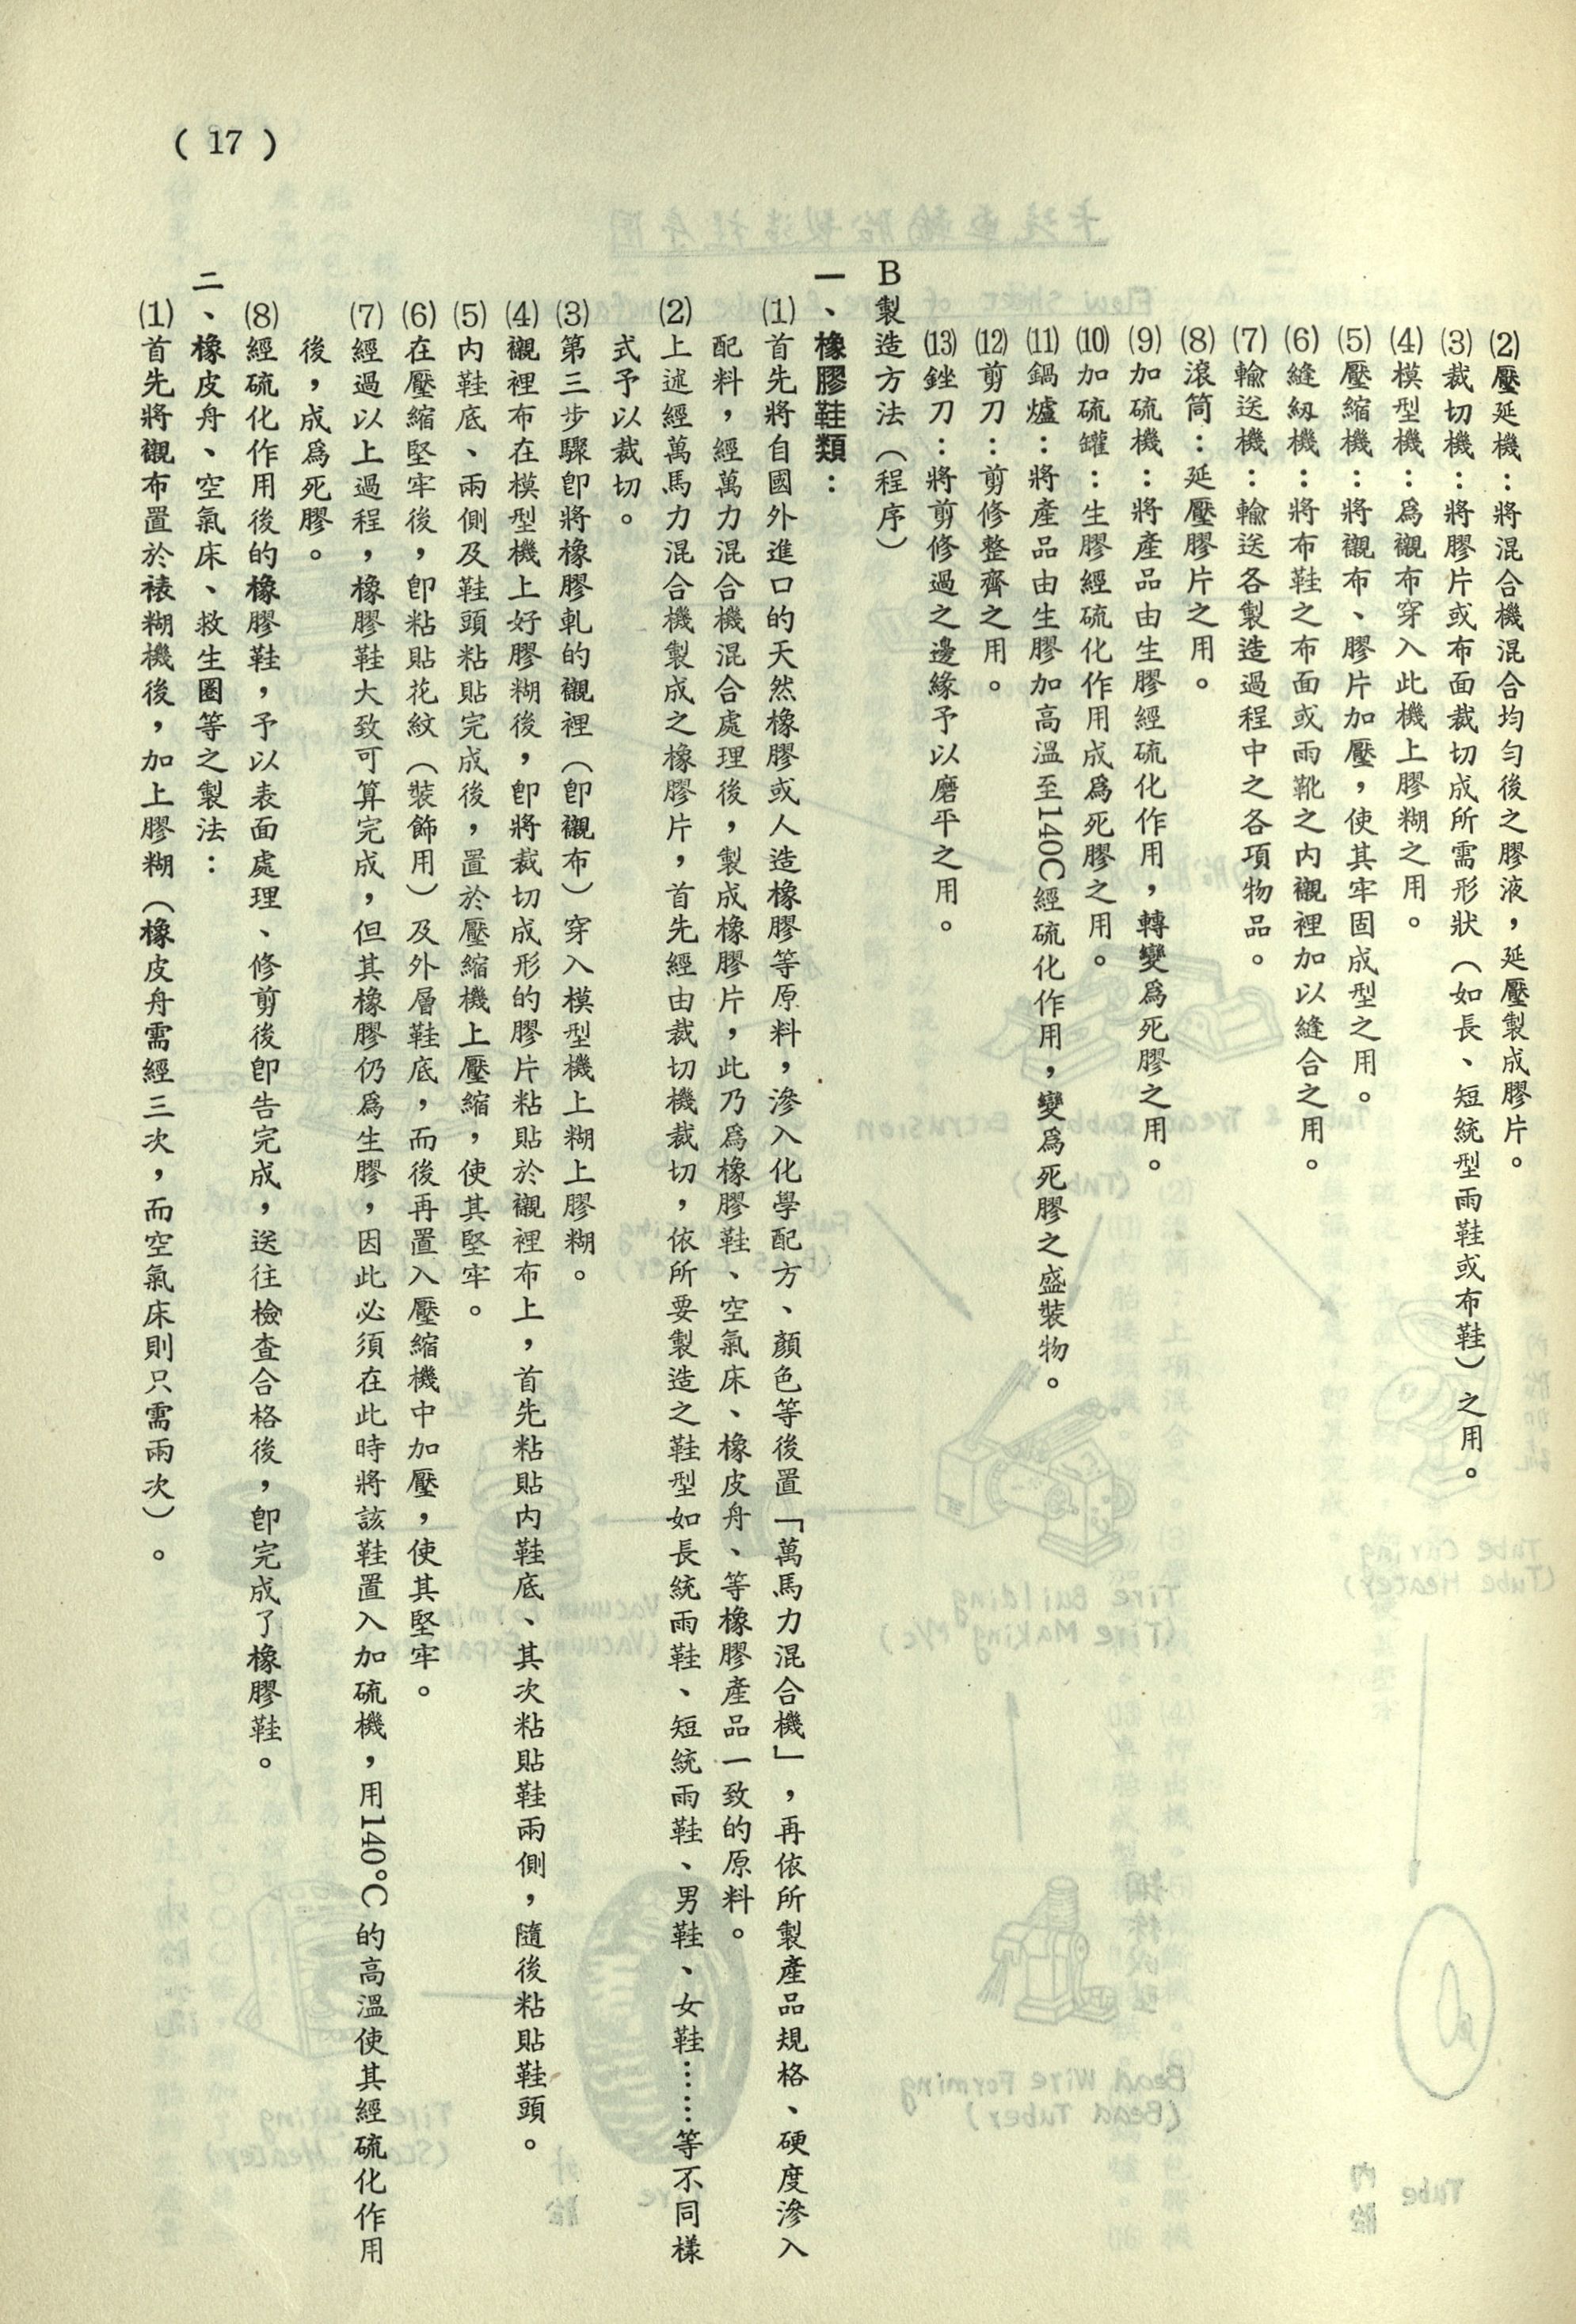 ( 17 )
(2)壓延機：將混合機混合均勻後之膠液，延壓製成膠片。
(3)裁切機：將膠片或布面裁切成所需形狀（如長、短統型雨鞋或布鞋）之用。
(4)模型機：爲襯布穿入此機上膠糊之用。
(5)壓縮機：將襯布、膠片加壓，使其牢固成型之用。
(6)縫紉機：將布鞋之布面或雨靴之内襯裡加以縫合之用。
(7)輸送機：輸送各製造過程中之各項物品。
(8)滾筒：延壓膠片之用。
(9)加硫機：將產品由生膠經硫化作用，轉變爲死膠之用。
(10)加硫罐：生膠經硫化作用成爲死膠之用。
(11)鍋爐：將產品由生膠加高溫至140C經硫化作用，變爲死膠之盛裝物。
(12)剪刀：剪修整齊之用。
(13)銼刀：將剪修過之邊緣予以磨平之用。
B製造方法（程序）
一、橡膠鞋類：
(1)首先將自國外進口的天然橡膠或人造橡膠等原料，滲入化學配方、顏色等後置「萬馬力混合機」，再依所製產品規格、硬度滲入
配料，經萬力混合機混合處理後，製成橡膠片，此乃爲橡膠鞋、空氣床、橡皮舟、等橡膠產品一致的原料。
(2)上述經萬馬力混合機製成之橡膠片，首先經由裁切機裁切，依所要製造之鞋型如長統雨鞋、短統雨鞋、男鞋、女鞋……等不同樣
式予以裁切。
(3)第三步驟卽將橡膠軋的襯裡（卽襯布）穿入模型機上糊上膠糊。
(4)襯裡布在模型機上好膠糊後，卽將裁切成形的膠片粘貼於襯裡布上，首先粘貼内鞋底、其次粘貼鞋兩側，隨後粘貼鞋頭。
(5)内鞋底、兩側及鞋頭粘貼完成後，置於壓縮機上壓縮，使其堅牢。
(6)在壓縮堅牢後，卽粘貼花紋（裝飾用）及外層鞋底，而後再置入壓縮機中加壓，使其堅牢。
(7)經過以上過程，橡膠鞋大致可算完成，但其橡膠仍爲生膠，因此必須在此時將該鞋置入加硫機，用140°C的高溫使其經硫化作用
後，成爲死膠。
(8)經硫化作用後的橡膠鞋，予以表面處理、修剪後卽告完成，送往檢查合格後，卽完成了橡膠鞋。
二、橡皮舟、空氣床、救生圈等之製法：
(1)首先將襯布置於裱糊機後，加上膠糊（橡皮舟需經三次，而空氣床則只需兩次）。